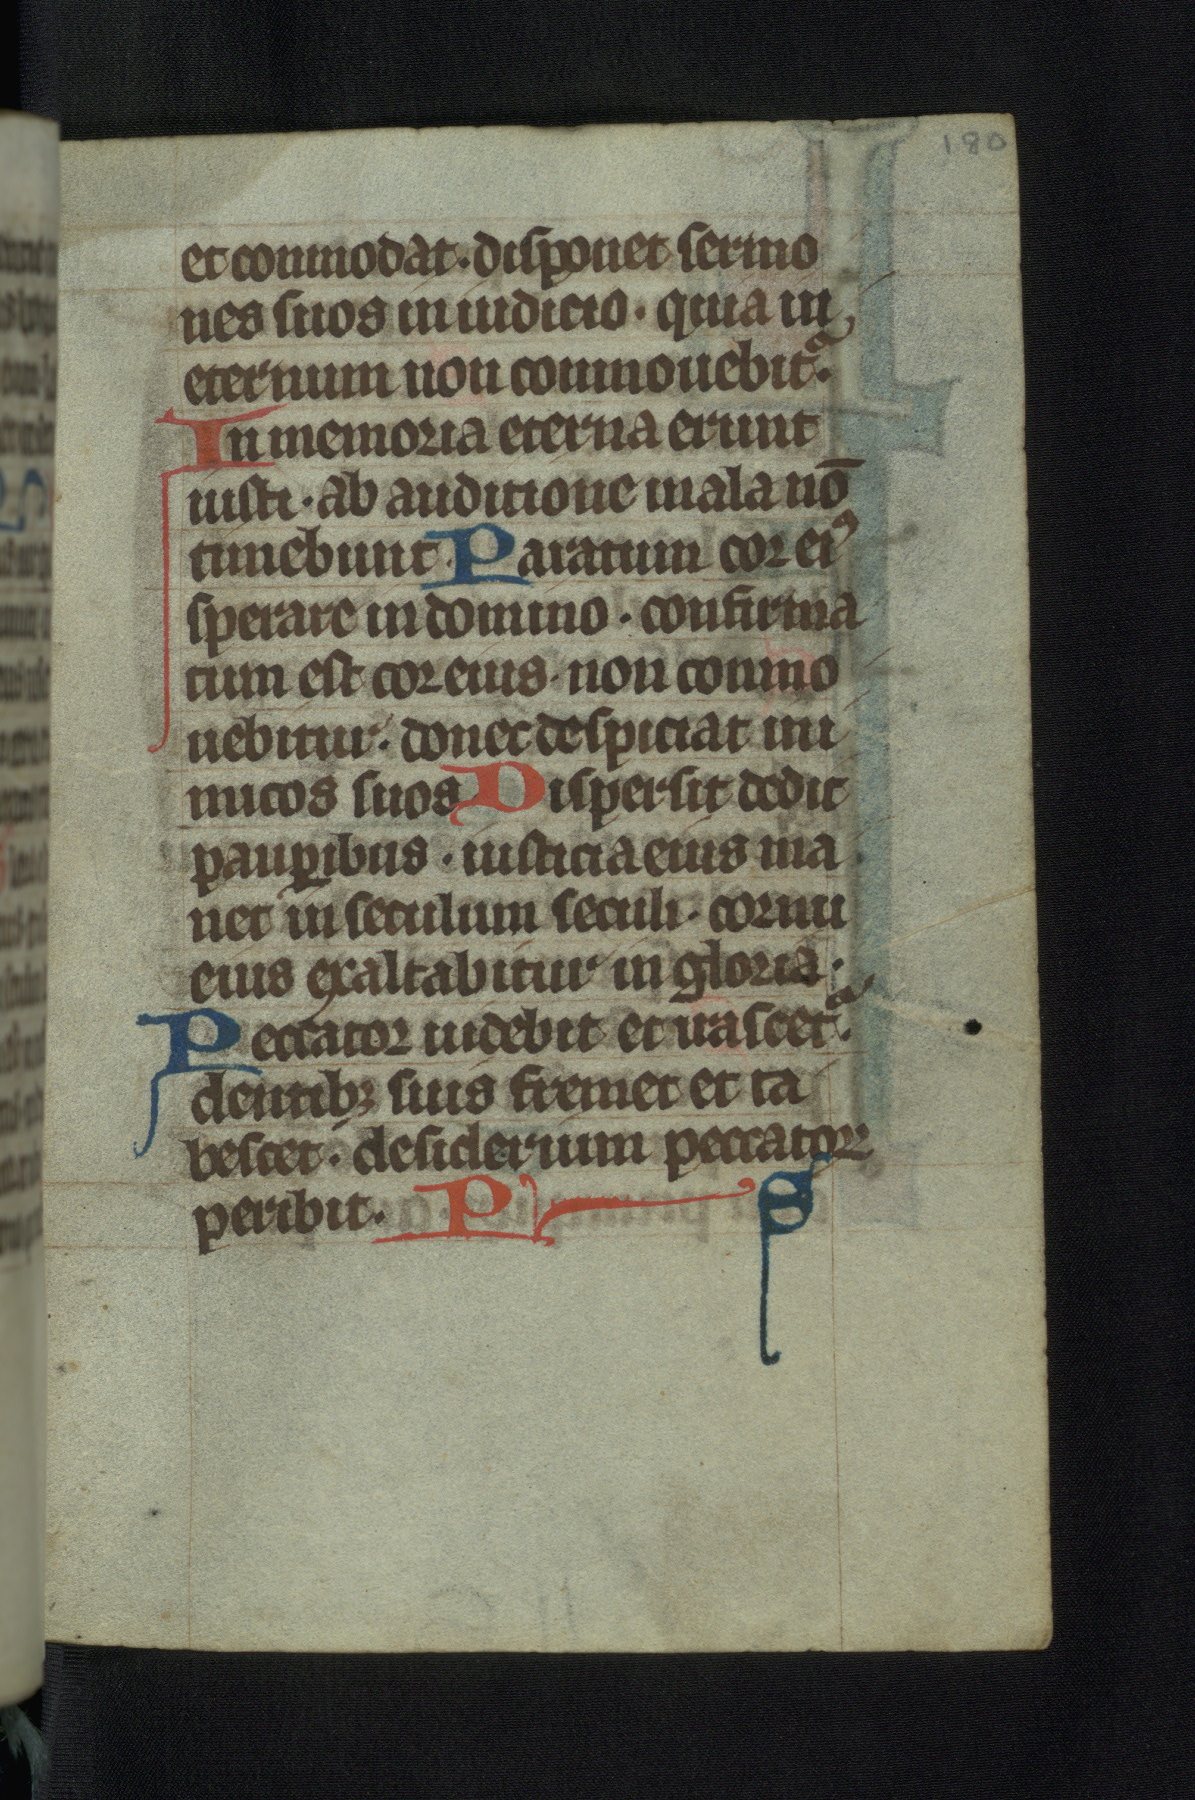 180
et conmodat · disponet sermo
nes suos in iudicio · quia in
eternum non conmouebitᷓ·
In memoria eterna erunt
iusti · ab auditione mala nō
timebunt · Paratum cor eiꝰ
sperare in domino · confirma
tum est cor eius · non conmo
uebitur · donec despiciat ini
micos suos Dispersit dedit
pauꝑibus · iusticia eius ma
net in seculum seculi · cornu
eius exaltabitur in gloria ·
Peccator uidebit et irascetᷓ·
dentibꝫ suis fremet et ta
bescet · desiderium peccator
peribit · P S